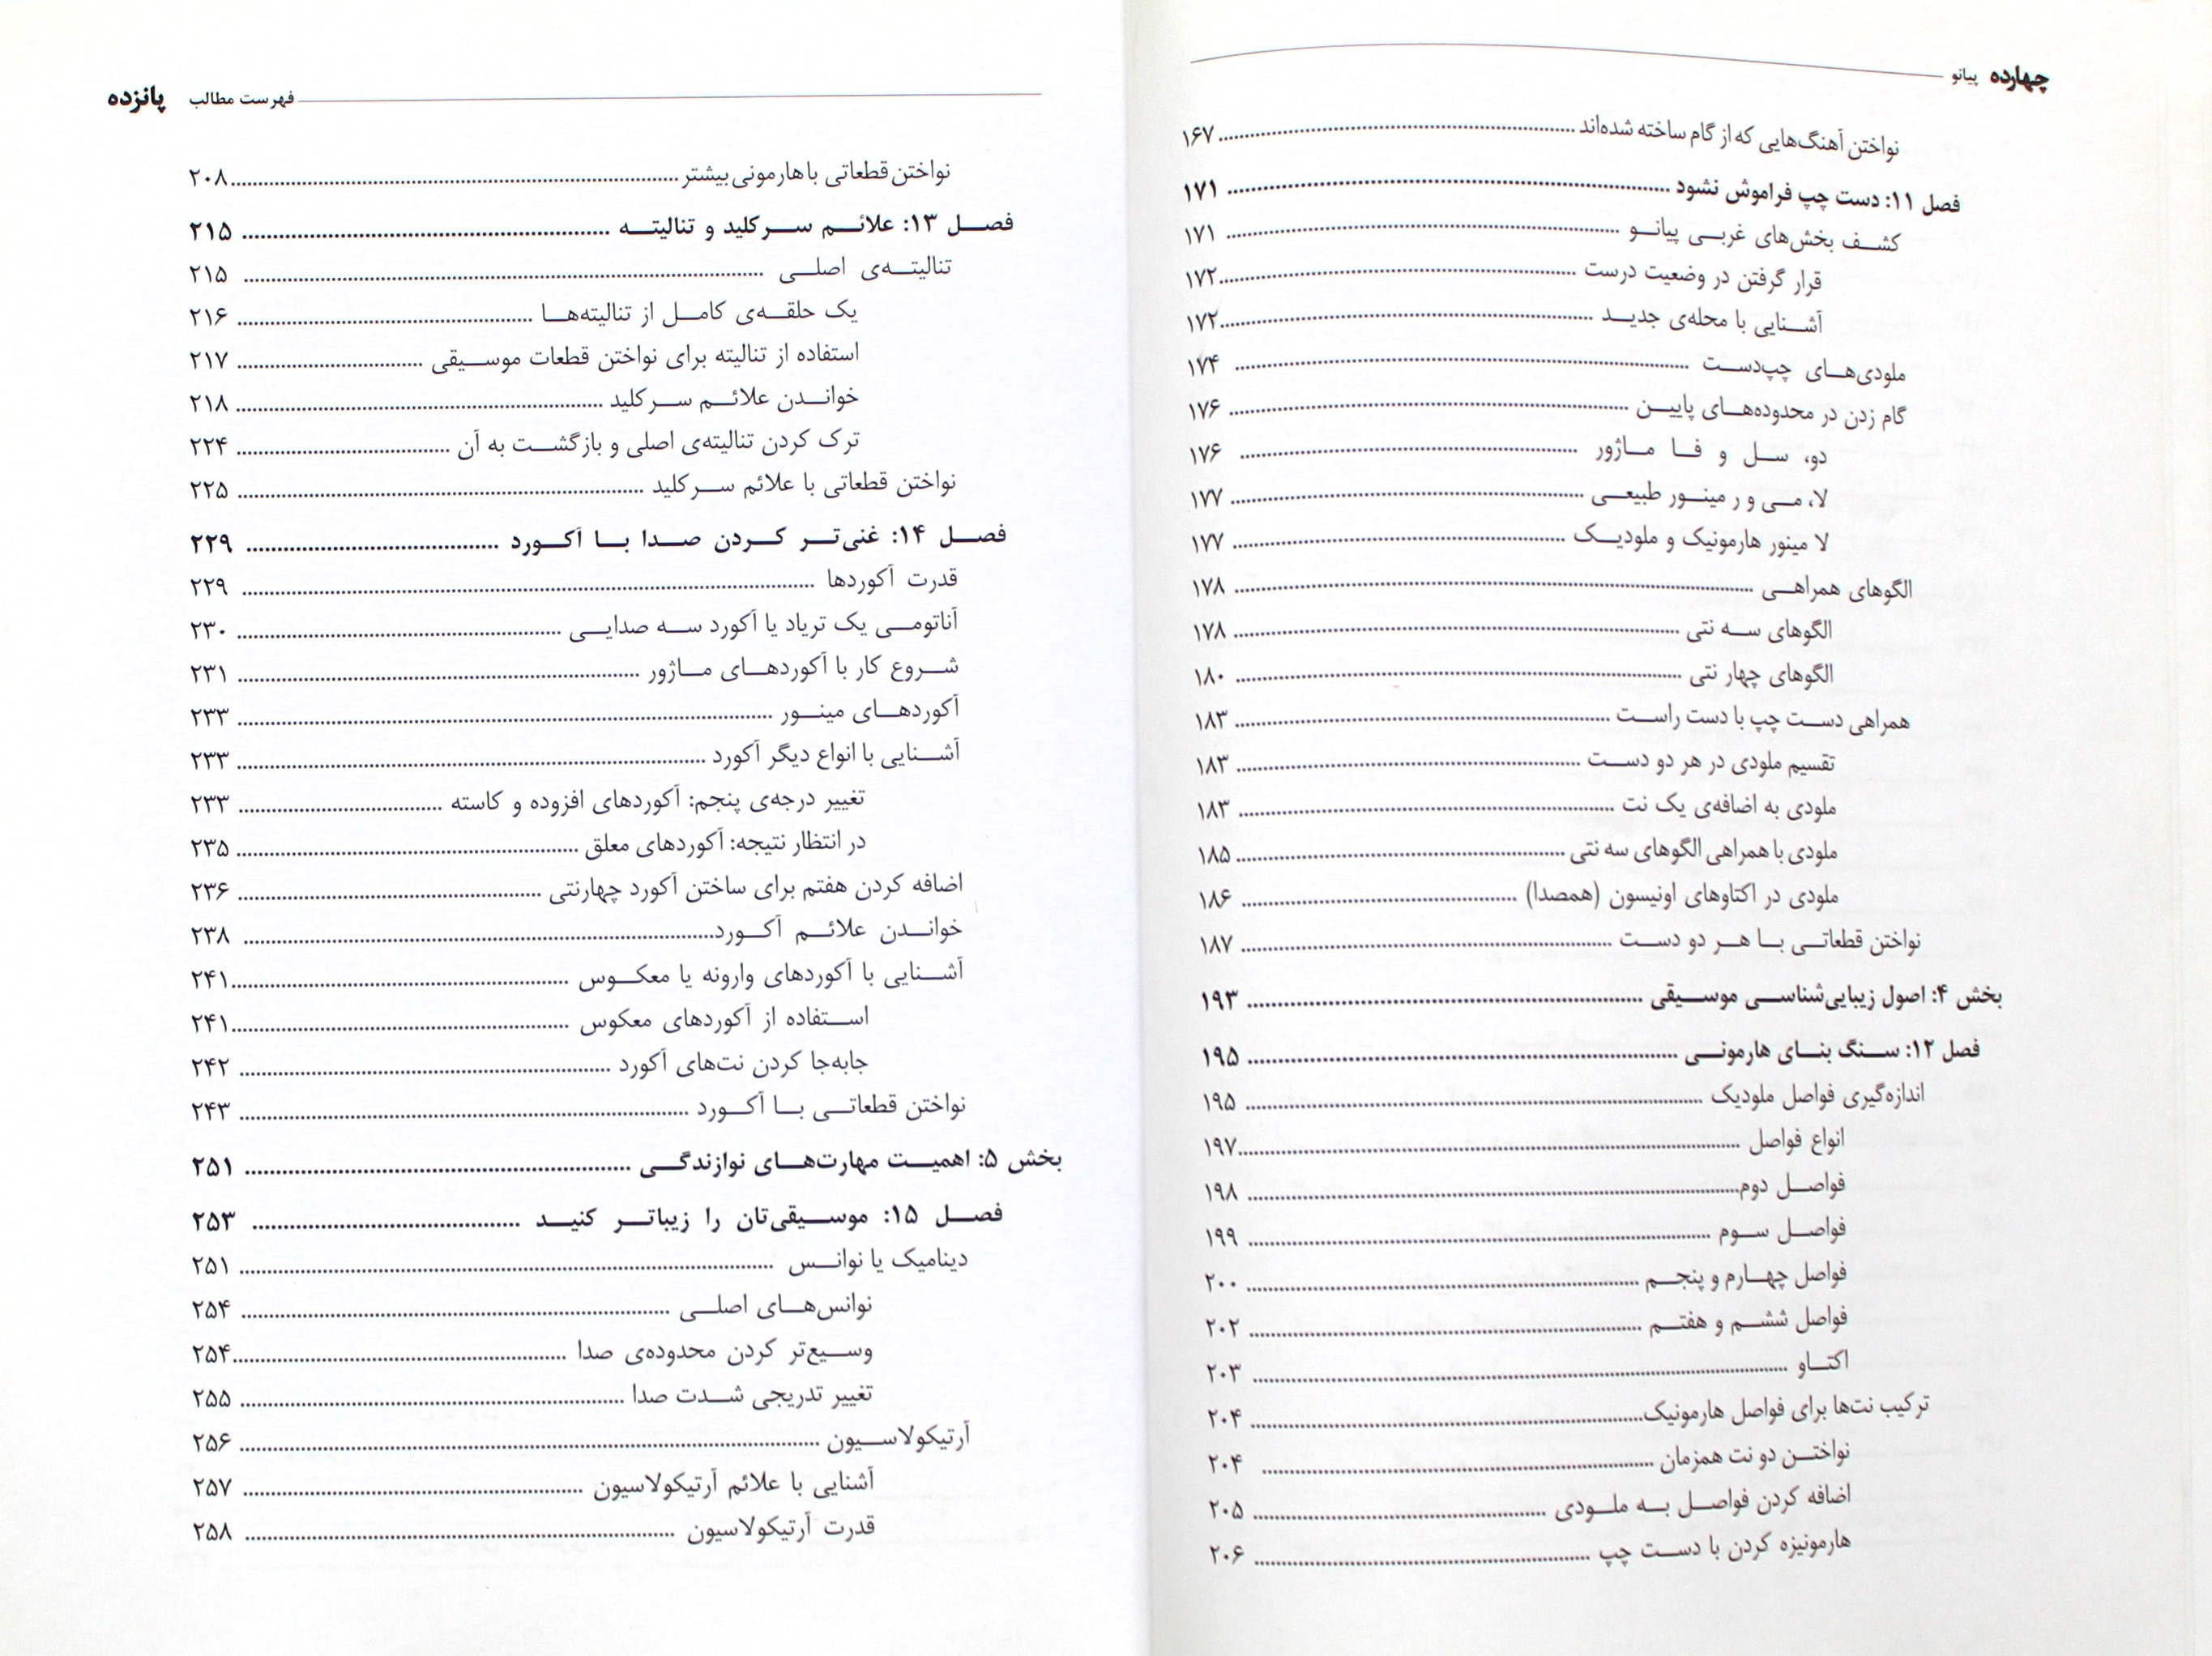 چهارده پیانو
نواختن آهنگ‌هایی که از گام ساخته شده‌اند ........ ۱۶۷
فصل ۱۱: دست چپ فراموش نشود ........ ۱۷۱
کشف بخش‌های غربی پیانو ........ ۱۷۱
قرار گرفتن در وضعیت درست ........ ۱۷۲
آشنایی با محله‌ی جدید ........ ۱۷۲
ملودی‌های چپ‌دست ........ ۱۷۴
گام زدن در محدوده‌های پایین ........ ۱۷۶
دو، سل و فا ماژور ........ ۱۷۶
لا، می و ر مینور طبیعی ........ ۱۷۷
لا مینور هارمونیک و ملودیک ........ ۱۷۷
الگوهای همراهی ........ ۱۷۸
الگوهای سه نتی ........ ۱۷۸
الگوهای چهار نتی ........ ۱۸۰
همراهی دست چپ با دست راست ........ ۱۸۳
تقسیم ملودی در هر دو دست ........ ۱۸۳
ملودی به اضافه‌ی یک نت ........ ۱۸۳
ملودی با همراهی الگوهای سه نتی ........ ۱۸۵
ملودی در اکتاوهای اونیسون (همصدا) ........ ۱۸۶
نواختن قطعاتی با هر دو دست ........ ۱۸۷
بخش ۴: اصول زیبایی‌شناسی موسیقی ........ ۱۹۳
فصل ۱۲: سنگ بنای هارمونی ........ ۱۹۵
اندازه‌گیری فواصل ملودیک ........ ۱۹۵
انواع فواصل ........ ۱۹۷
فواصل دوم ........ ۱۹۸
فواصل سوم ........ ۱۹۹
فواصل چهارم و پنجم ........ ۲۰۰
فواصل ششم و هفتم ........ ۲۰۲
اکتاو ........ ۲۰۳
ترکیب نت‌ها برای فواصل هارمونیک ........ ۲۰۴
نواختن دو نت همزمان ........ ۲۰۴
اضافه کردن فواصل به ملودی ........ ۲۰۵
هارمونیزه کردن با دست چپ ........ ۲۰۶
فهرست مطالب پانزده
نواختن قطعاتی با هارمونی بیشتر ........ ۲۰۸
فصل ۱۳: علائم سرکلید و تنالیته ........ ۲۱۵
تنالیته‌ی اصلی ........ ۲۱۵
یک حلقه‌ی کامل از تنالیته‌ها ........ ۲۱۶
استفاده از تنالیته برای نواختن قطعات موسیقی ........ ۲۱۷
خواندن علائم سرکلید ........ ۲۱۸
ترک کردن تنالیته‌ی اصلی و بازگشت به آن ........ ۲۲۴
نواختن قطعاتی با علائم سرکلید ........ ۲۲۵
فصل ۱۴: غنی‌تر کردن صدا با آکورد ........ ۲۲۹
قدرت آکوردها ........ ۲۲۹
آناتومی یک تریاد یا آکورد سه صدایی ........ ۲۳۰
شروع کار با آکوردهای ماژور ........ ۲۳۱
آکوردهای مینور ........ ۲۳۳
آشنایی با انواع دیگر آکورد ........ ۲۳۳
تغییر درجه‌ی پنجم: آکوردهای افزوده و کاسته ........ ۲۳۳
در انتظار نتیجه: آکوردهای معلق ........ ۲۳۵
اضافه کردن هفتم برای ساختن آکورد چهارنتی ........ ۲۳۶
خواندن علائم آکورد ........ ۲۳۸
آشنایی با آکوردهای وارونه یا معکوس ........ ۲۴۱
استفاده از آکوردهای معکوس ........ ۲۴۱
جابه‌جا کردن نت‌های آکورد ........ ۲۴۲
نواختن قطعاتی با آکورد ........ ۲۴۳
بخش ۵: اهمیت مهارت‌های نوازندگی ........ ۲۵۱
فصل ۱۵: موسیقی‌تان را زیباتر کنید ........ ۲۵۳
دینامیک یا نوانس ........ ۲۵۱
نوانس‌های اصلی ........ ۲۵۴
وسیع‌تر کردن محدوده‌ی صدا ........ ۲۵۴
تغییر تدریجی شدت صدا ........ ۲۵۵
آرتیکولاسیون ........ ۲۵۶
آشنایی با علائم آرتیکولاسیون ........ ۲۵۷
قدرت آرتیکولاسیون ........ ۲۵۸